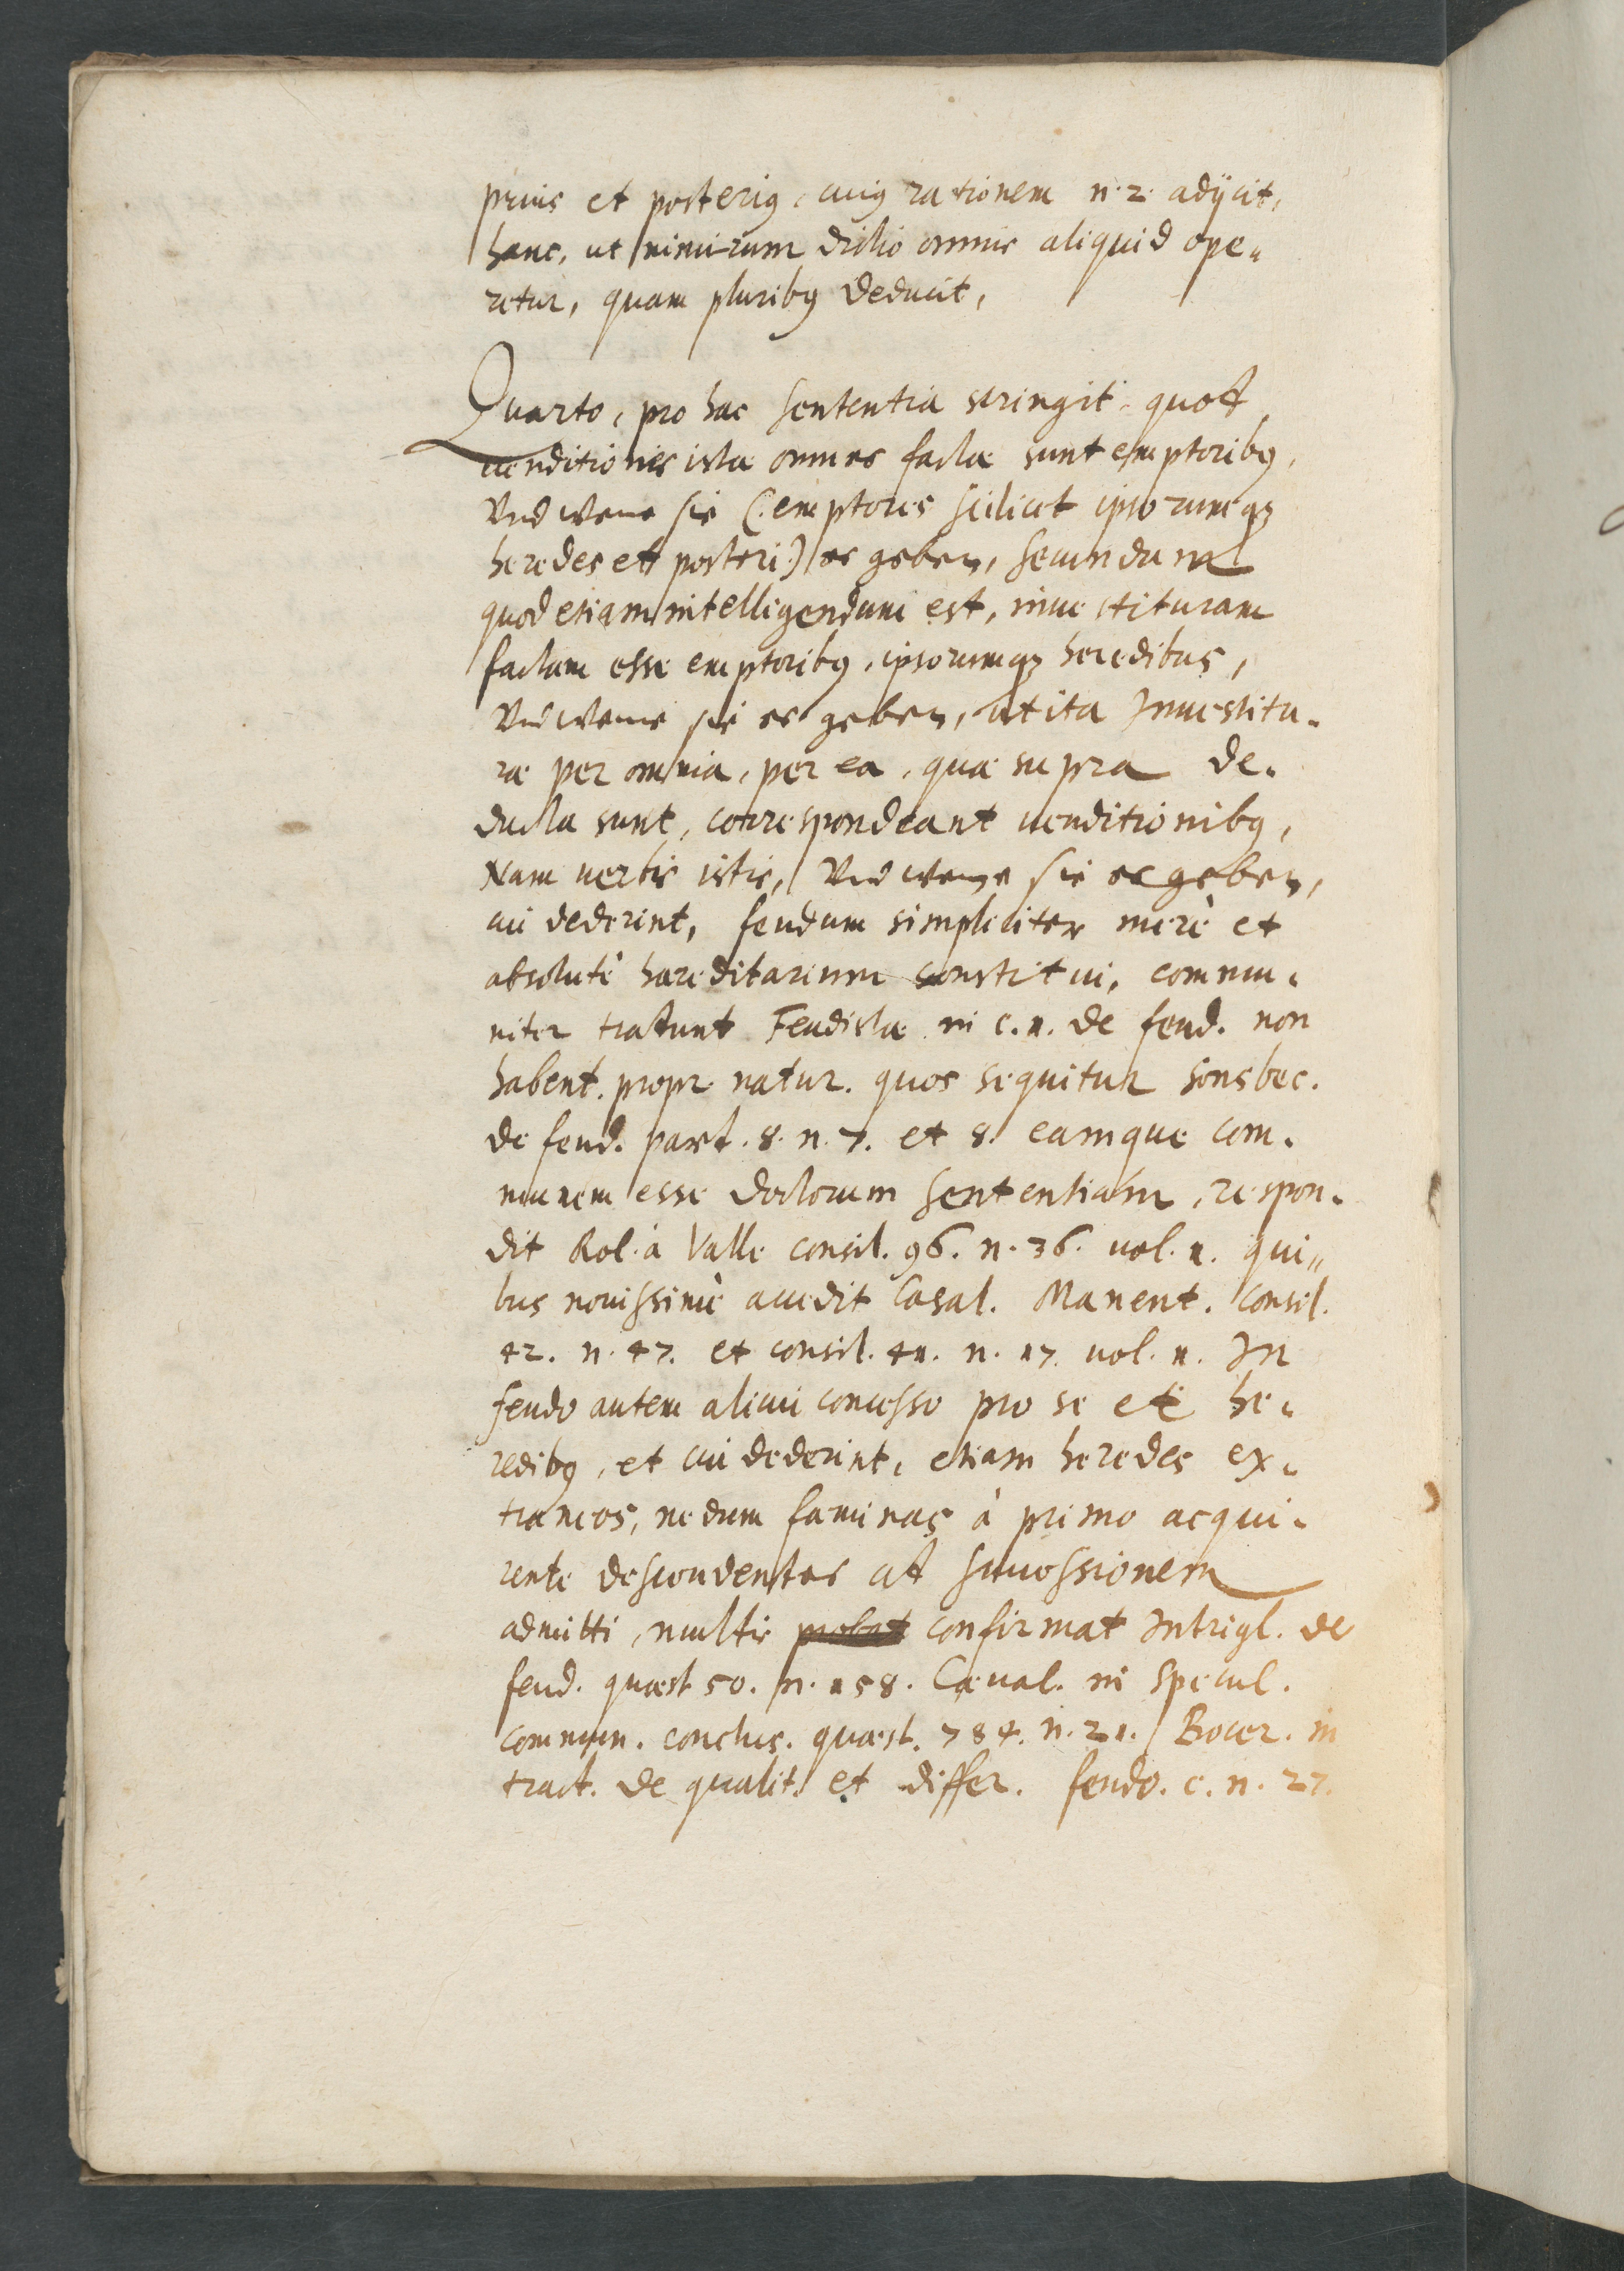 prius et posterig, cuig rationem n. 2. adijcit,
hanc, ut nimirum dictio omnis aliquid ope„
retur, quam pluribg deducit,
Quarto, pro hac sententia stringit quod
uenditiones istæ omnes factæ sunt emptoribg,
Vnd weme sie (: emptores scilicet ipsorumqz
heredes et posteri :) es geben, secundum
quod etiam intelligendum est, inuestituram
factam esse emptoribg, ipsorumqz heredibus,
Vnd weme sie es geben, ut ita Inuestitu„
ræ per omnia, per ea, quæ supra de„
ducta sunt, correspondeant uenditionibg,
Nam uerbis istis, Vnd weme sie es geben,
cui dederint, feudum simpliciter merè et
absolutè hæreditarium constitui, commu„
niter tradunt Feudistæ in c. 1. de feud. non
habent. propr. natur. quos sequitur Sonsbec.
de feud. part. 8. n. 7. et 8. eamque com„
munem esse doctorum sententiam, respon„
dit Rol. à Valle consil. 96. n. 36. uol. 1. qui„
bus nouissimè accedit Casal. Manent. consil.
42. n. 47. et consil. 41. n. 17. uol. 1. In
feudo autem alicui concesso pro se et he„
redibg, et cui dederint, etiam heredes ex„
traneos, nedum fæminas à primo acqui„
rente descendentes ad successionem
admitti, multis probat confirmat Intrigl. de
feud. quæst. 50. n. 158. Cæual. in specul.
commun. conclus. quæst. 784. n. 21. Bocer. in
tract. de qualit. et differ. feudo. c. n. 27.